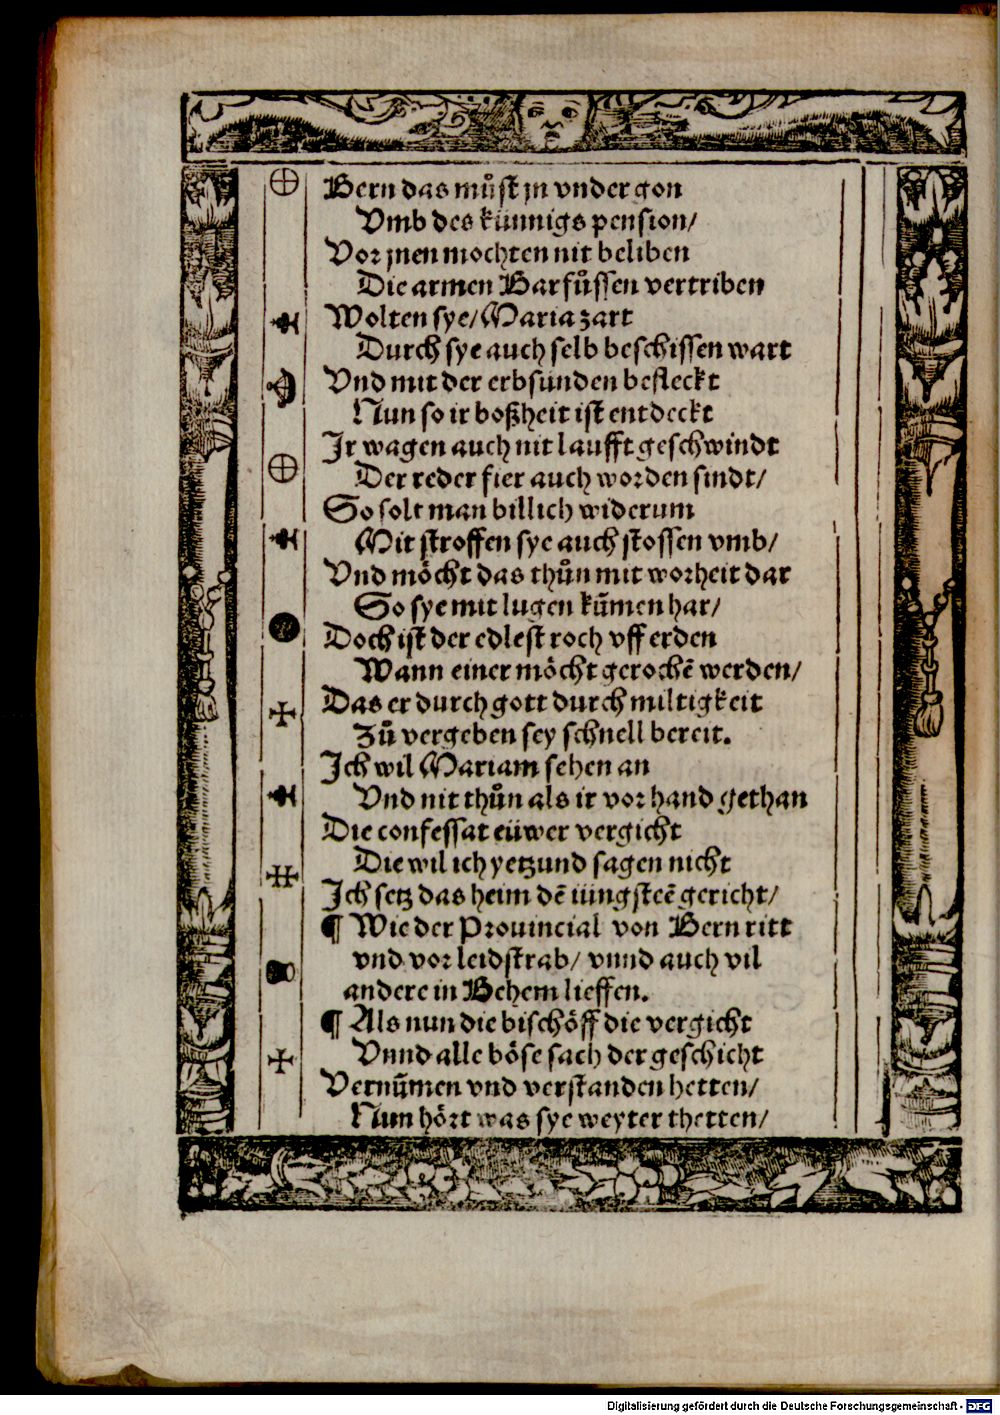 Bern das muͦſt jn vnder gon
Vmb des künnigs penſion/
Vor jnen mochten nit beliben
Die armen Barfuͦſſen vertriben
Wolten ſye/ Maria zart
Durch ſye auch ſelb beſchiſſen wart
Vnd mit der erbſünden befleckt
Nun ſo ir boßheit iſt entdeckt
Ir wagen auch nit laufft geſchwindt
Der reder fier auch worden ſindt/
So ſolt man billich widerum
Mit ſtroffen ſye auch ſtoſſen vmb/
Vnd möcht das thuͦn mit worheit dar
So ſye mit lugen kūmen har/
Doch iſt der edleſt roch vff erden
Wann einer möcht gerochē werden/
Das er durch gott durch miltigkeit
Zuͦ vergeben ſey ſchnell bereit.
Ich wil Mariam ſehen an
Vnd nit thuͦn als ir vor hand gethan
Die confeſſat eüwer vergicht
Die wil ich yetzund ſagen nicht
Ich ſetz das heim dē iüngſteē gericht/
¶ Wie der Prouincial von Bern ritt
vnd vor leid ſtrab/ vnnd auch vil
andere in Behem lieffen.
¶ Als nun die biſchöff die vergicht
Vnnd alle böſe ſach der geſchicht
Vernūmen vnd verſtanden hetten/
Nun hört was ſye weyter thetten/
Digitalisierung gefördert durch die Deutsche Forschungsgemeinschaft - DFG